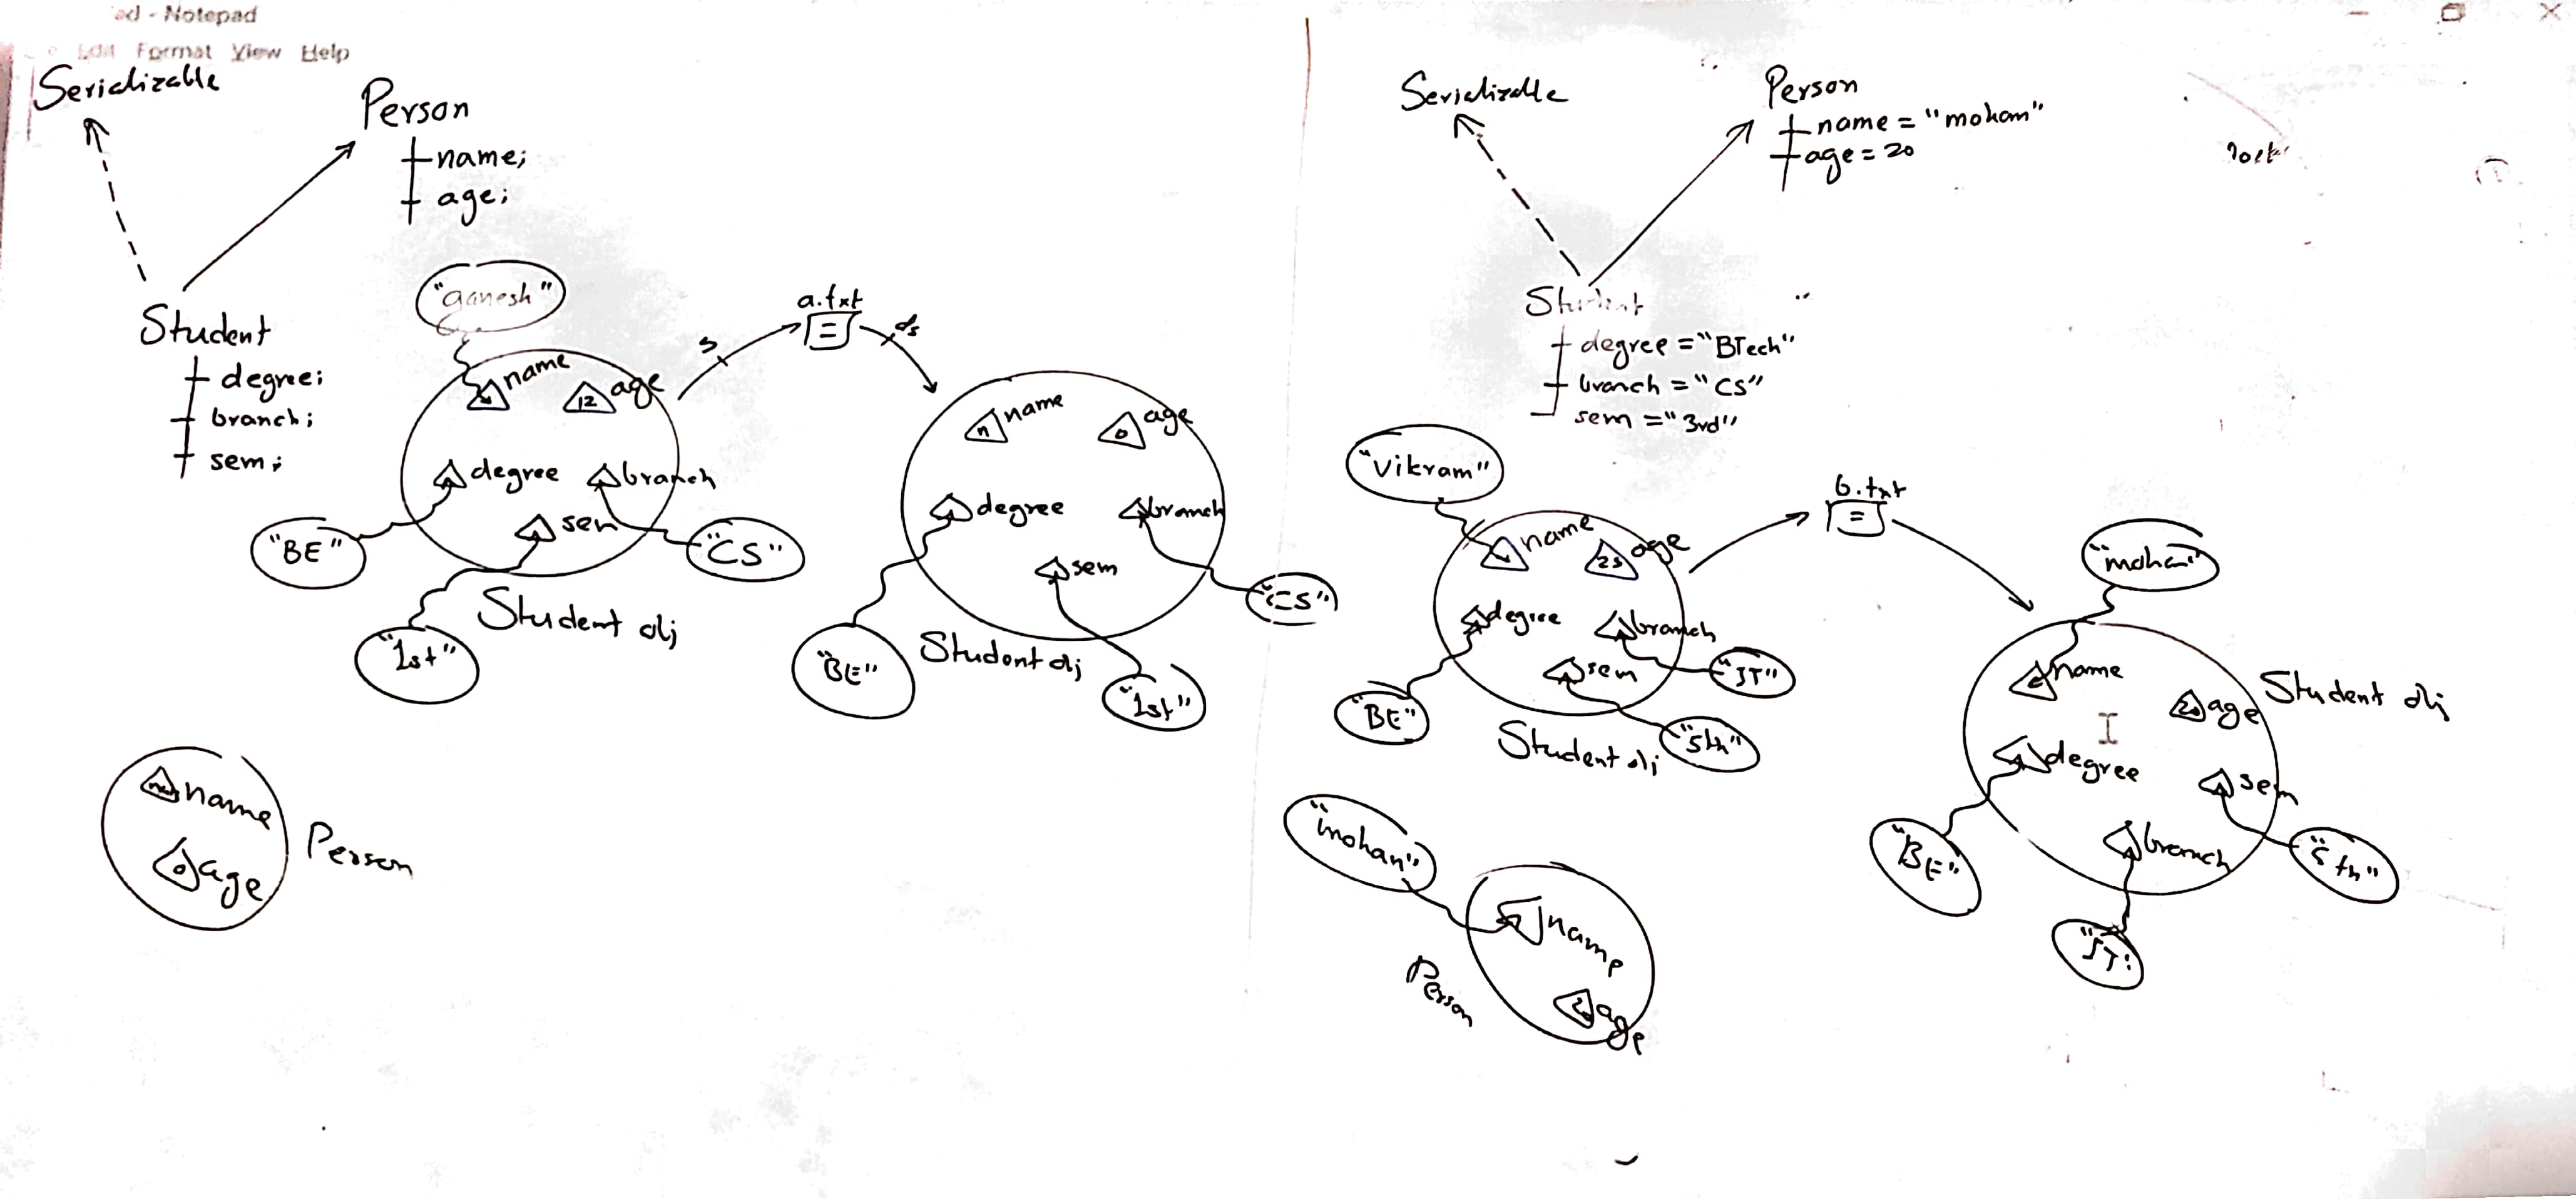 ed - Notepad
Edit Format View Help
Serializable
Person
name;
age;
Student
degree;
branch;
sem;
"ganesh"
name
12 age
degree
branch
sem
"BE"
"CS"
"1st"
Student obj
s
a.txt
ds
n name
0 age
degree
branch
sem
"BE"
"CS"
"1st"
Student obj
name
0 age
Person
Serializable
Person
name = "mohan"
age = 20
Student
degree = "BTech"
branch = "CS"
sem = "3rd"
"Vikram"
name
25 age
degree
branch
sem
"BE"
"IT"
"5th"
Student obj
b.txt
"mohan"
name
20 age
degree
sem
branch
"BE"
"5th"
"IT"
Student obj
"mohan"
name
20 age
Person